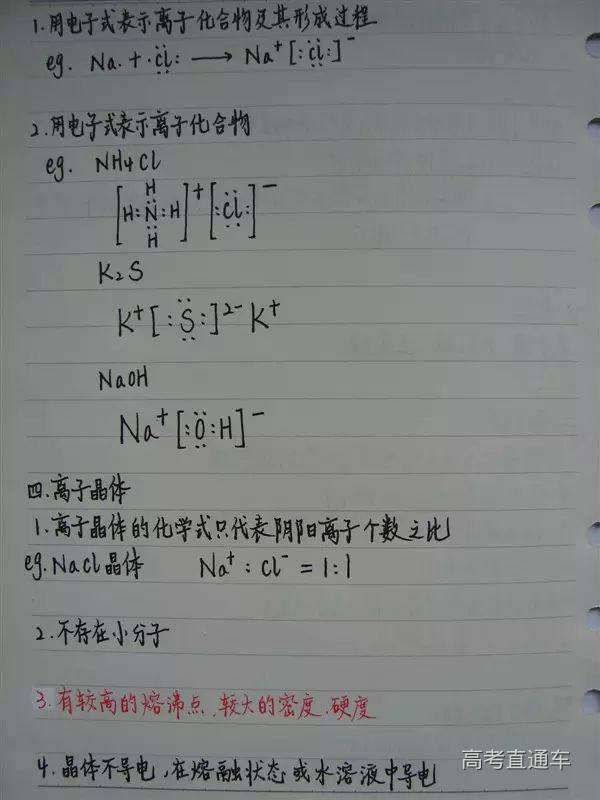 1.用电子式表示离子化合物及其形成过程
eg. Na· + ·C̈l̤: ⟶ Na⁺[:C̈l̤:]⁻
2.用电子式表示离子化合物
eg. NH4Cl
H
[H:N̤̈:H]⁺[:C̈l̤:]⁻
H
K₂S
K⁺[:S̤̈:]²⁻K⁺
NaOH
Na⁺[:Ö̤:H]⁻
四.离子晶体
1.离子晶体的化学式只代表阴阳离子个数之比
eg.NaCl晶体 Na⁺:Cl⁻=1:1
2.不存在小分子
3.有较高的熔沸点、较大的密度、硬度
4.晶体不导电,在熔融状态或水溶液中导电
高考直通车